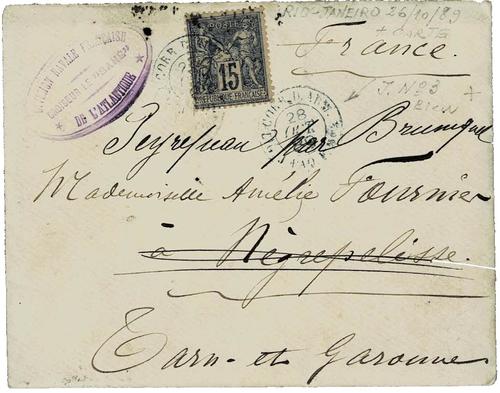 RIO-JANEIRO 26/10/89
+ CARTE
France
DIVISION NAVALE FRANÇAISE
DE L'ATLANTIQUE
POSTES
15
RÉPUBLIQUE FRANÇAISE
CORR. D'ARM.
28
OCT
J. N° 3
Peyrefuau par Bruniquel
Mademoiselle Amélie Fournier
à Nègrepelisse
Tarn-et Garonne